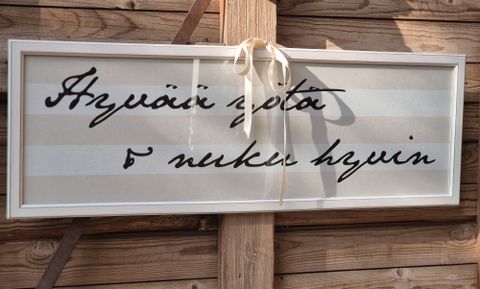 Hyvää yötä
& nuku hyvin